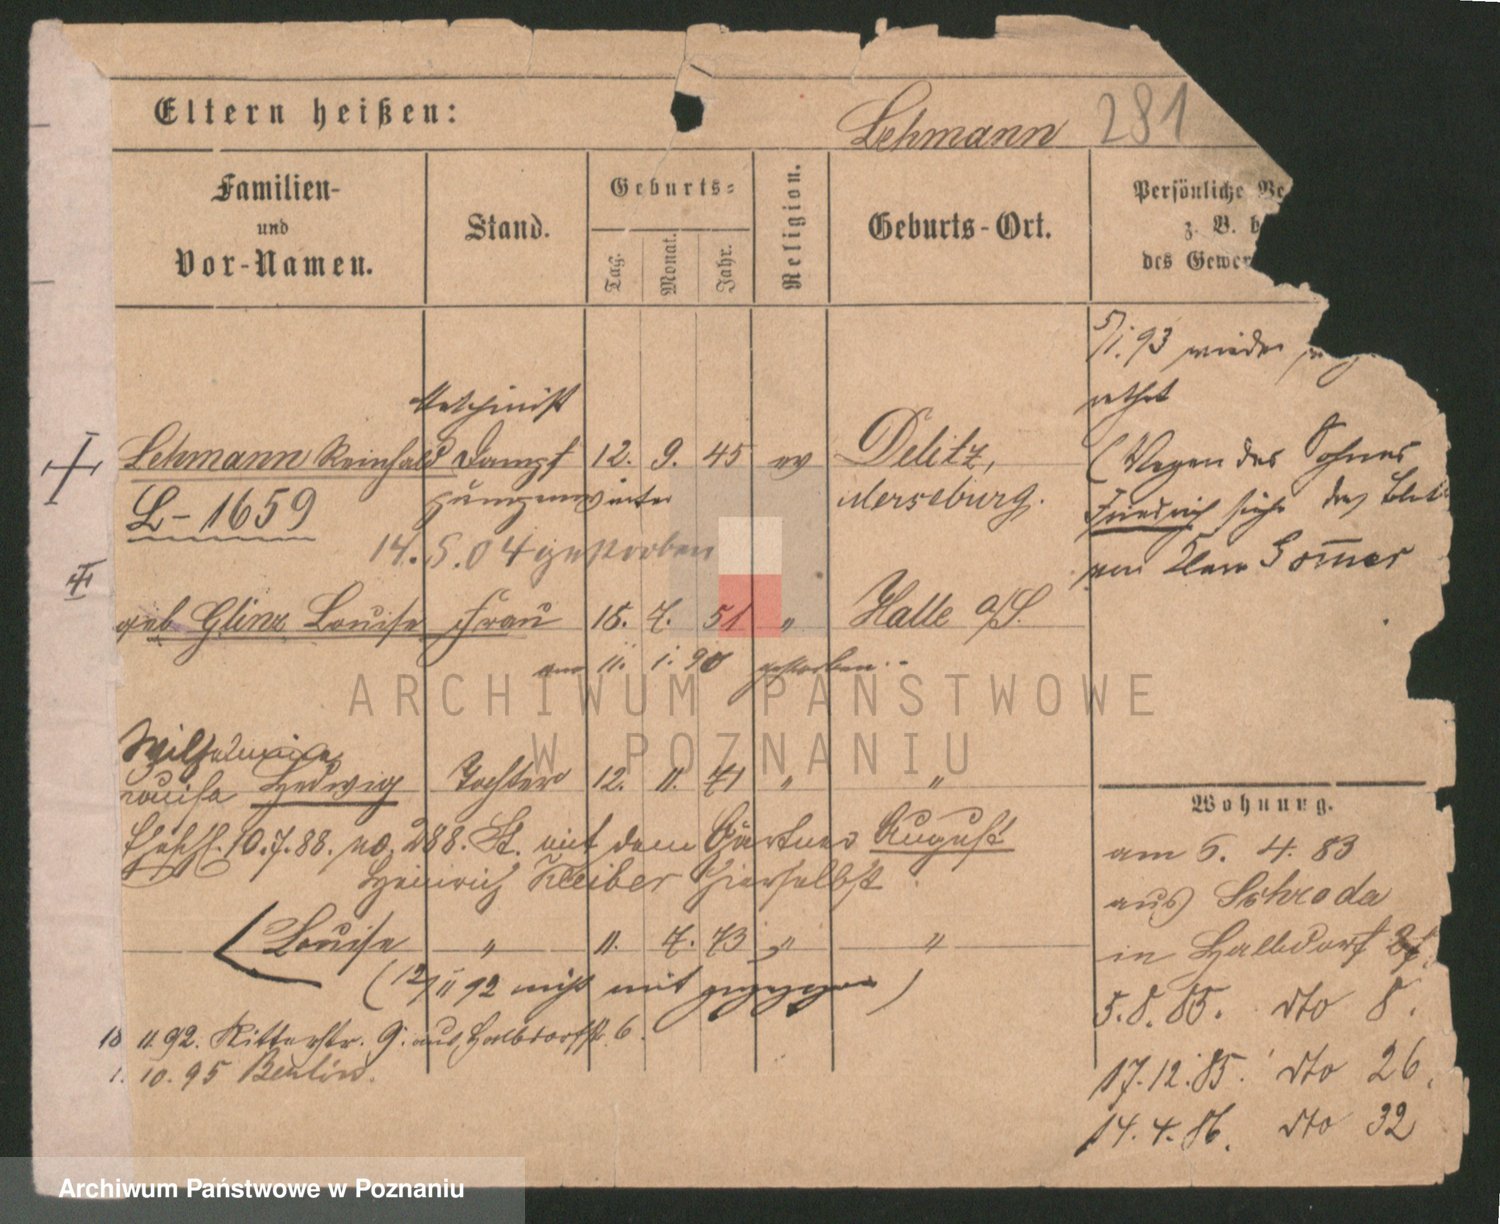 Eltern heißen:
Lehmann 281
Familien-
und
Vor-Namen.
Stand.
Geburts=
Tag.
Monat.
Jahr.
Religion.
Geburts-Ort.
Persönliche Be
z. B. b
des Gewer
5/1. 93 wieder
Maschinist
Lehmann Reinhold Dampf 12. 9. 45 ev Delitz,
L-1659 Merseburg.
(Wegen des Sohnes
Friedrich siehe das Blatt
14. 5. 04 gestorben
geb Glinz Louise Frau 18. 7. 51 " Halle a/S.
am 11. 1. 90 gestorben.
Wilhelmine
Louise Hedwig Tochter 12. 11. 71 " "
Ehesch. 10.7.88. no. 288. St. mit dem Gärtner August
Heinrich Kleiber hierselbst
Louise " 11. 7. 73 " "
(12/11 92 nicht mit gezogen)
18 11 92. Ritterstr. 9. aus Halbdorfstr. 6.
1. 10. 95 Berlin.
Wohnung.
am 5. 4. 83
aus Schroda
in Halbdorf
5.8.85. dto 8.
17.12.85. dto 26.
14.4.86. dto 32
ARCHIWUM PAŃSTWOWE
W POZNANIU
Archiwum Państwowe w Poznaniu